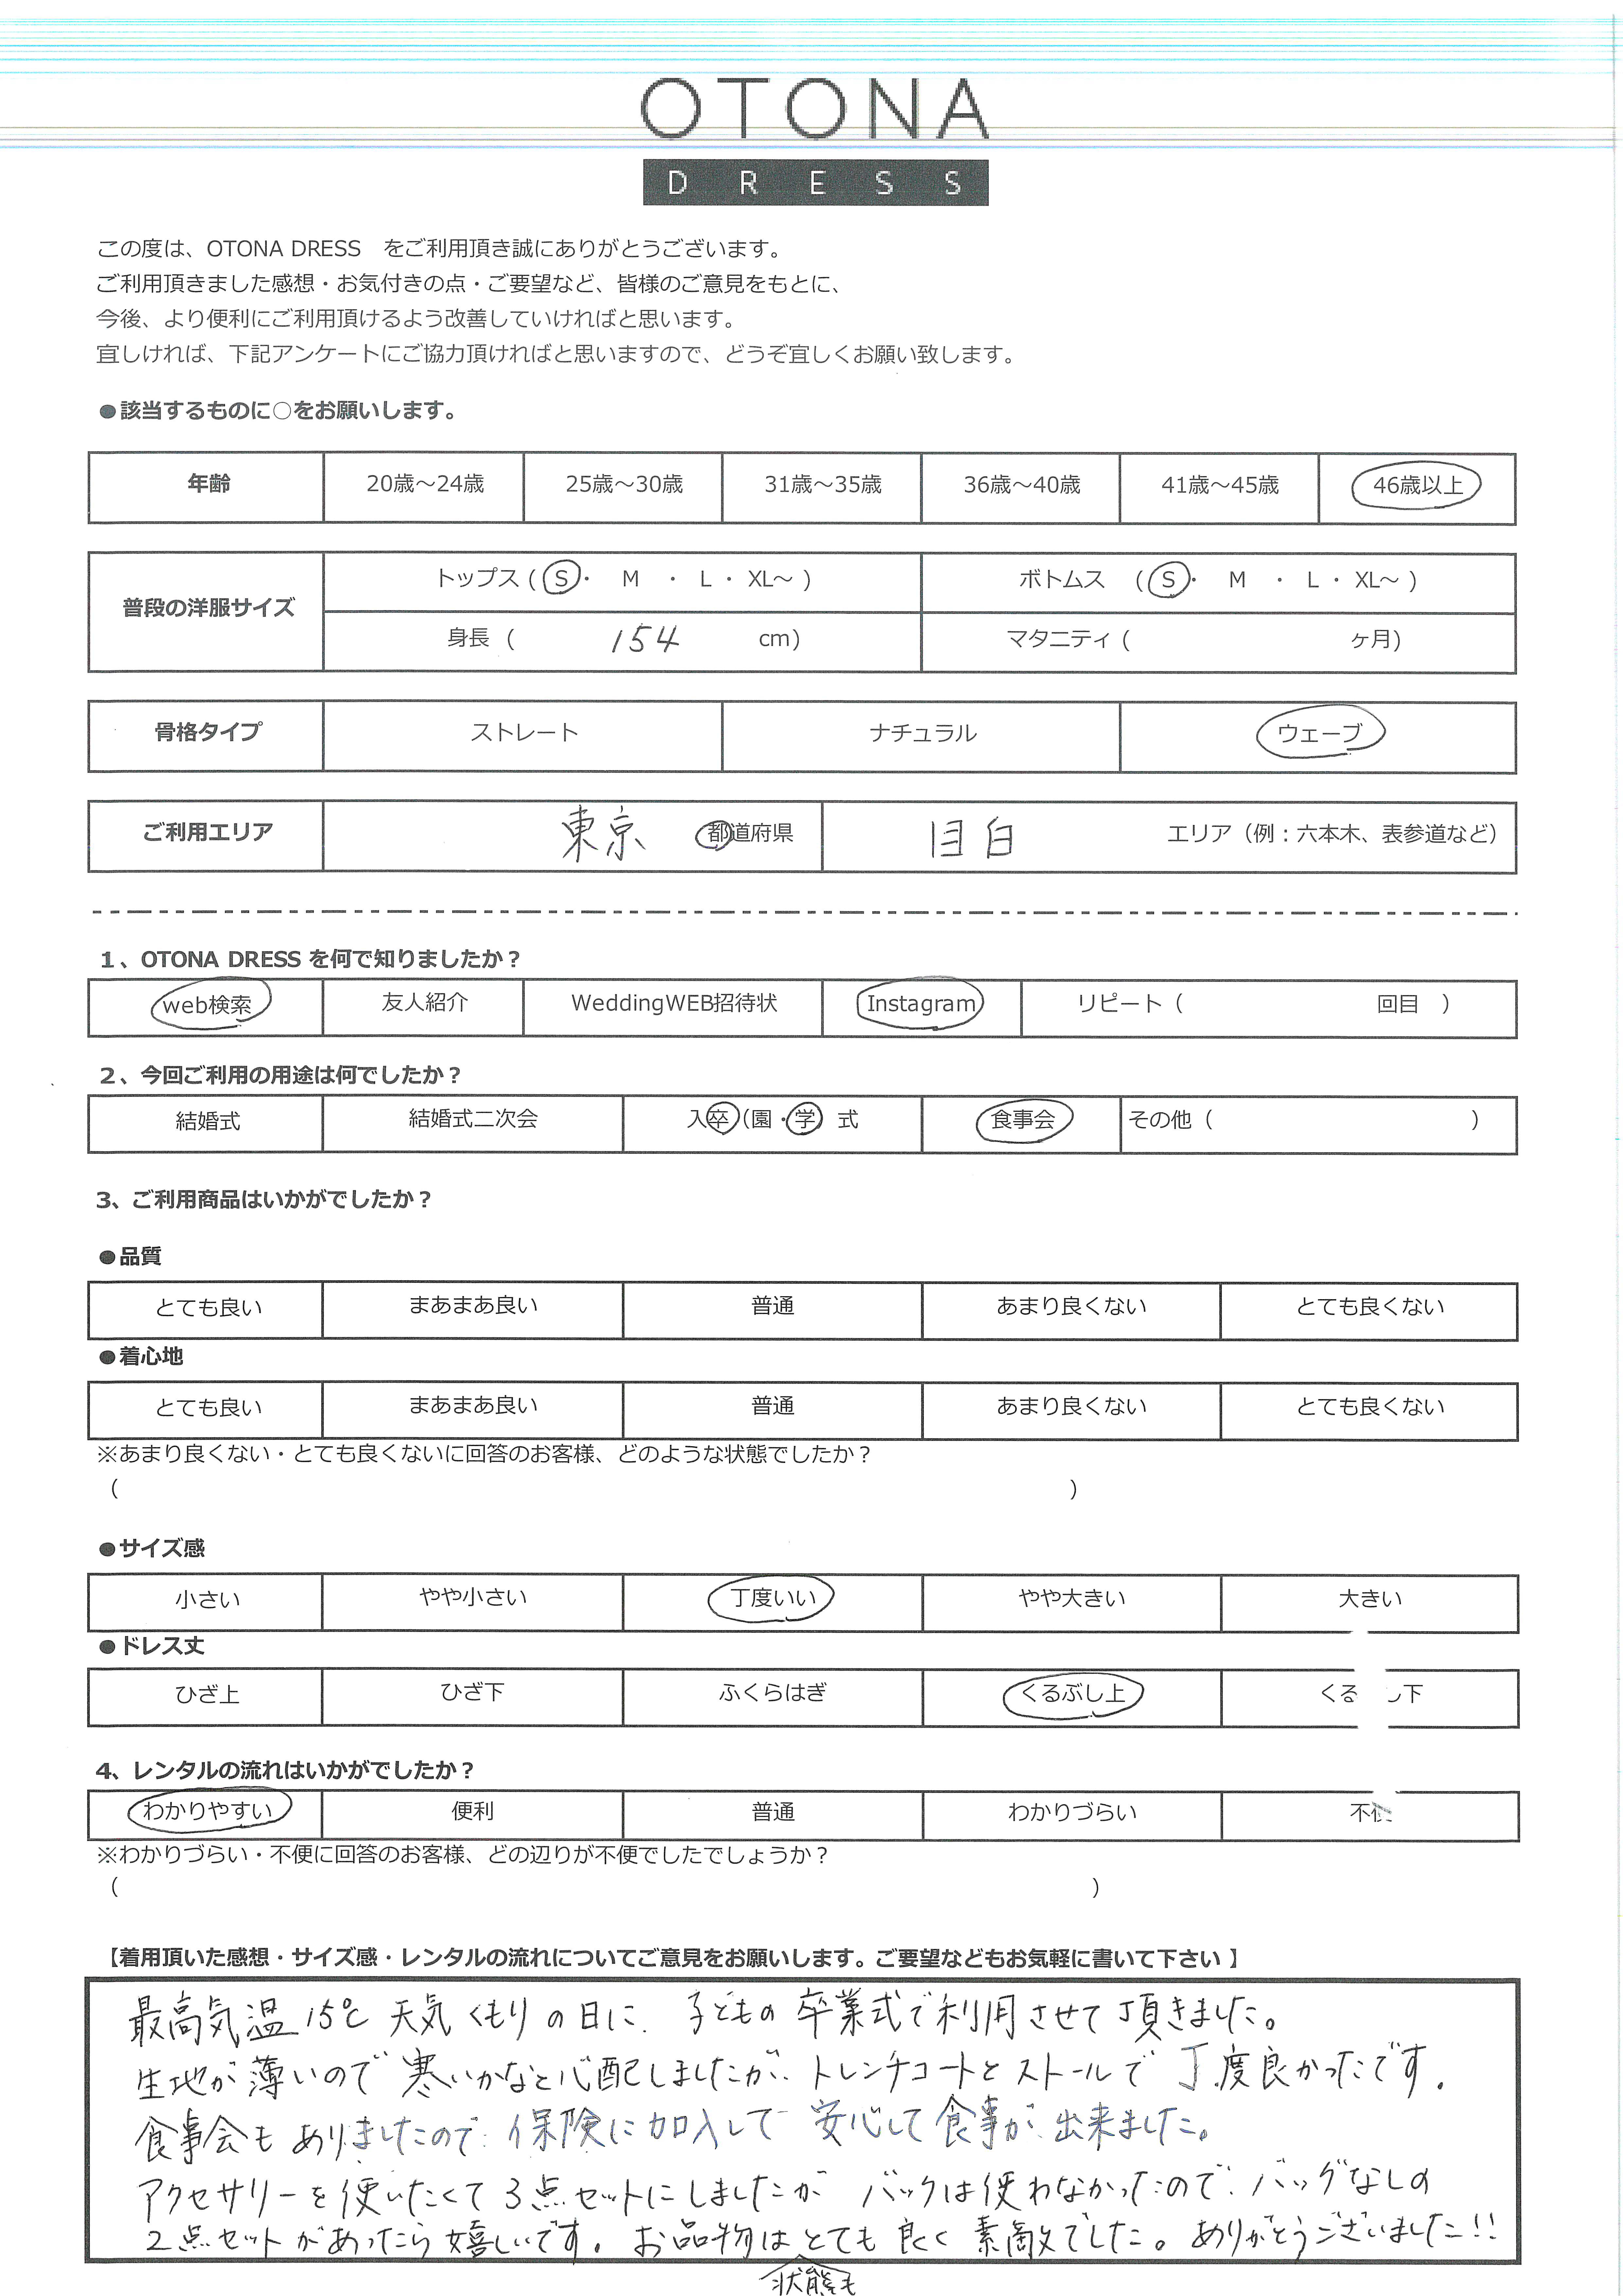 OTONA
DRESS
この度は、OTONA DRESS　をご利用頂き誠にありがとうございます。
ご利用頂きました感想・お気付きの点・ご要望など、皆様のご意見をもとに、
今後、より便利にご利用頂けるよう改善していければと思います。
宜しければ、下記アンケートにご協力頂ければと思いますので、どうぞ宜しくお願い致します。
●該当するものに○をお願いします。
年齢 20歳～24歳 25歳～30歳 31歳～35歳 36歳～40歳 41歳～45歳 46歳以上
普段の洋服サイズ トップス ( S ・ M ・ L ・ XL～ ) ボトムス ( S ・ M ・ L ・ XL～ )
身長 ( 154 cm) マタニティ ( ヶ月)
骨格タイプ ストレート ナチュラル ウェーブ
ご利用エリア 東京 都道府県 目白 エリア（例：六本木、表参道など）
1、OTONA DRESS を何で知りましたか？
web検索 友人紹介 WeddingWEB招待状 Instagram リピート（ 回目 ）
2、今回ご利用の用途は何でしたか？
結婚式 結婚式二次会 入卒（園・学 式 食事会 その他（ ）
3、ご利用商品はいかがでしたか？
●品質
とても良い まあまあ良い 普通 あまり良くない とても良くない
●着心地
とても良い まあまあ良い 普通 あまり良くない とても良くない
※あまり良くない・とても良くないに回答のお客様、どのような状態でしたか？
（ ）
●サイズ感
小さい やや小さい 丁度いい やや大きい 大きい
●ドレス丈
ひざ上 ひざ下 ふくらはぎ くるぶし上 くる し下
4、レンタルの流れはいかがでしたか？
わかりやすい 便利 普通 わかりづらい 不
※わかりづらい・不便に回答のお客様、どの辺りが不便でしたでしょうか？
（ ）
【着用頂いた感想・サイズ感・レンタルの流れについてご意見をお願いします。ご要望などもお気軽に書いて下さい 】
最高気温15℃ 天気くもりの日に、子どもの卒業式で利用させて頂きました。
生地が薄いので寒いかなと心配しましたが、トレンチコートとストールで丁度良かったです。
食事会もありましたので、保険に加入して安心して食事が出来ました。
アクセサリーを使いたくて3点セットにしましたが バックは使わなかったので、バッグなしの
2点セットがあったら嬉しいです。お品物はとても良く素敵でした。ありがとうございました!!
状態も